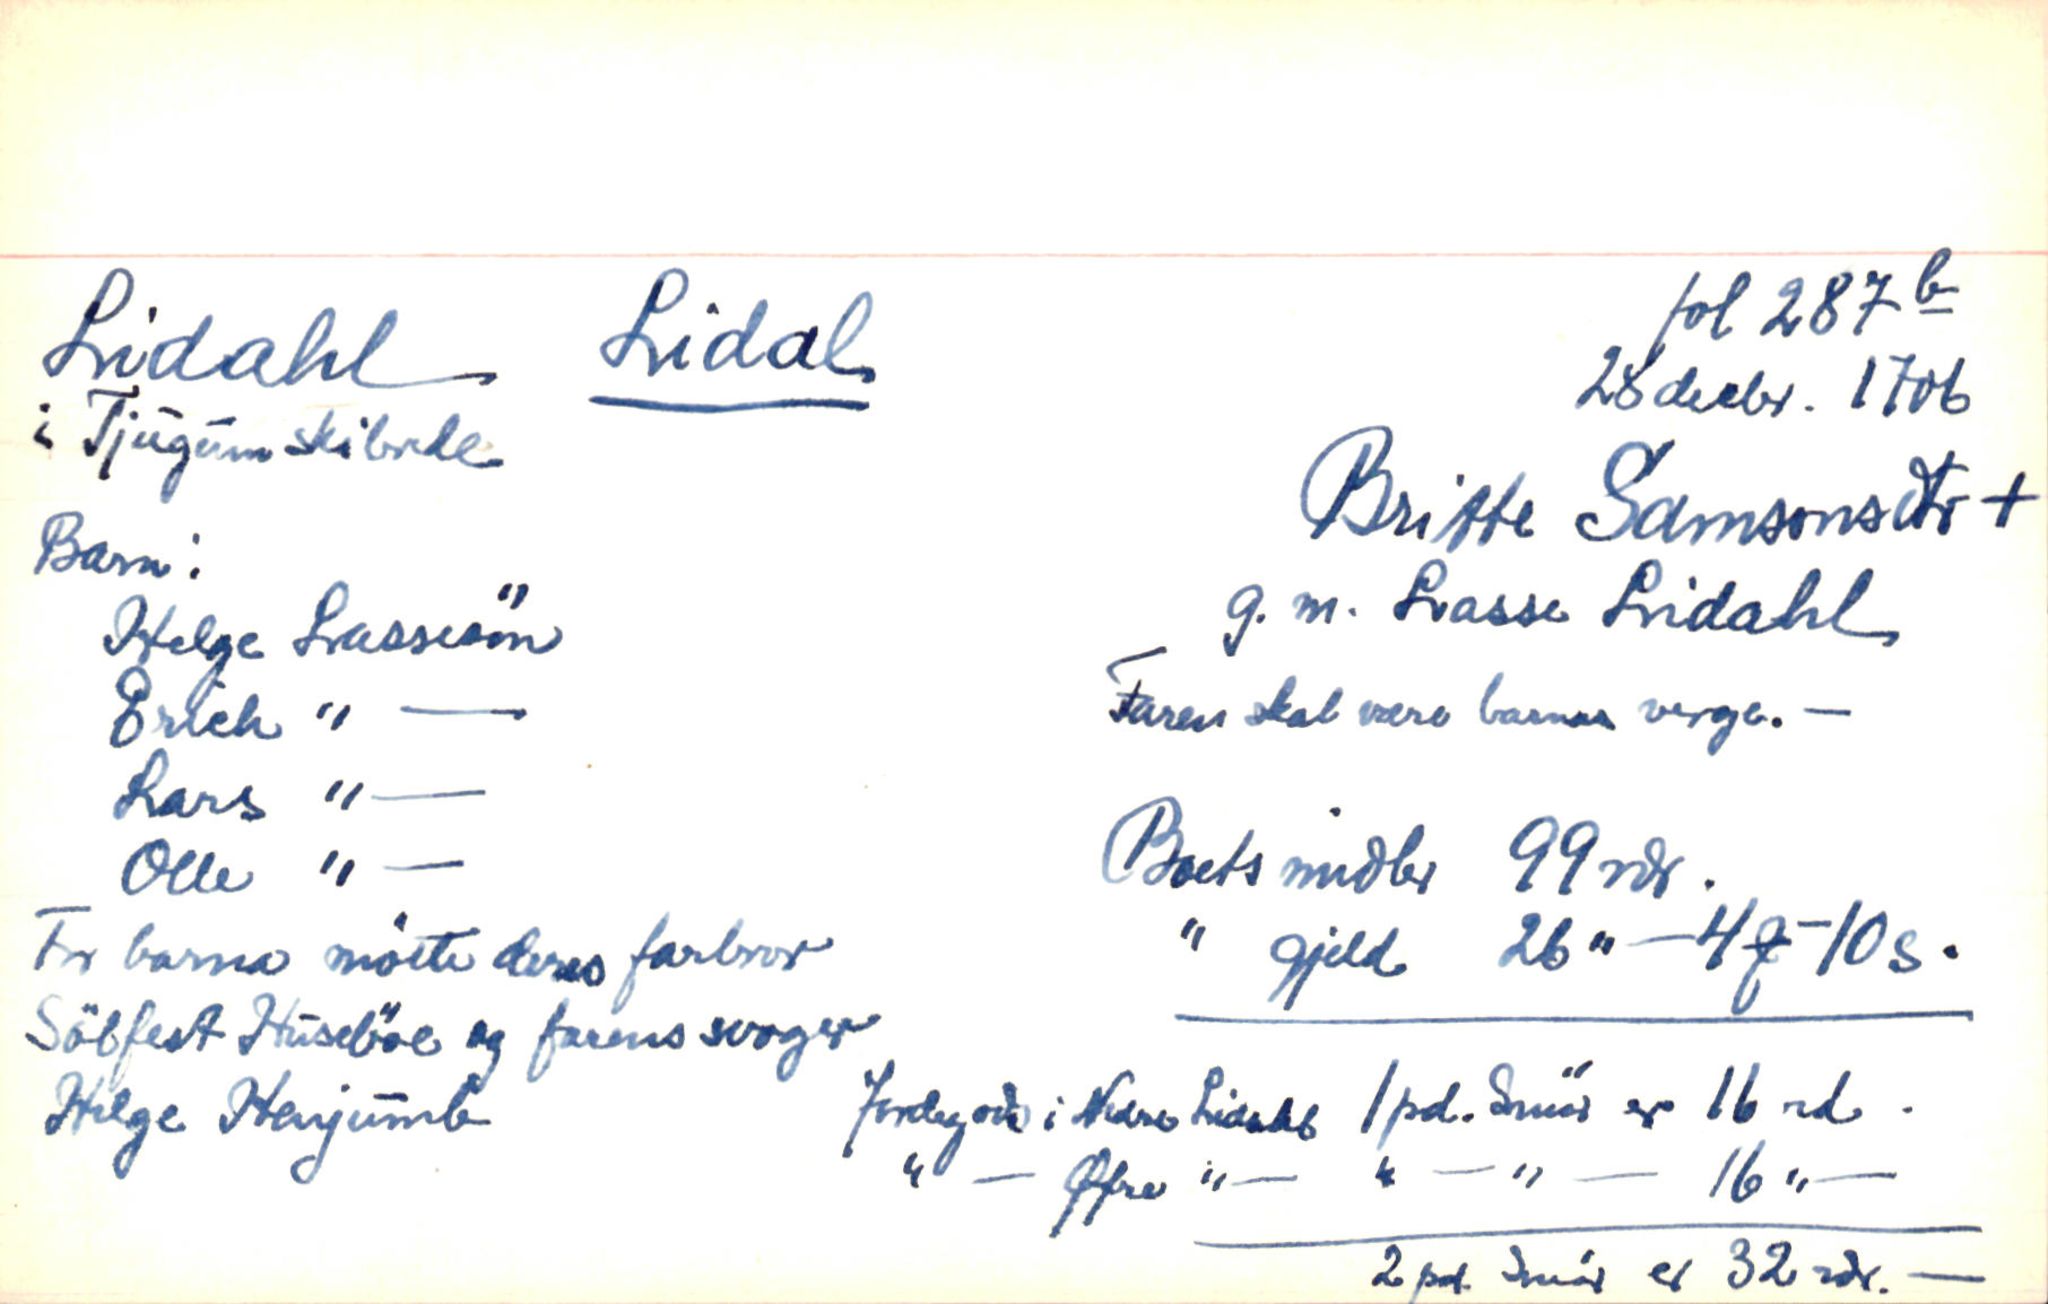 Lidahl Lidal
i Tjugum skibrede
fol 287 b
28 decbr. 1706
Britte Samsonsdtr +
g. m. Lasse Lidahl
Faren skal være barnas verge. —
Barn:
Helge Lassesön
Erich " —
Lars " —
Olle " —
For barna mötte deres farbror
Sölfest Huseböe og farens svoger
Helge Henjumb
Boets midler 99 rdr.
" gjeld 26 " — 4 ƶ — 10 s.
Jordegods i Nedre Lidahl 1 pd. Smör er 16 rd.
" — Øfre " — " — " — 16 " —
2 pd. Smör er 32 rdr. —